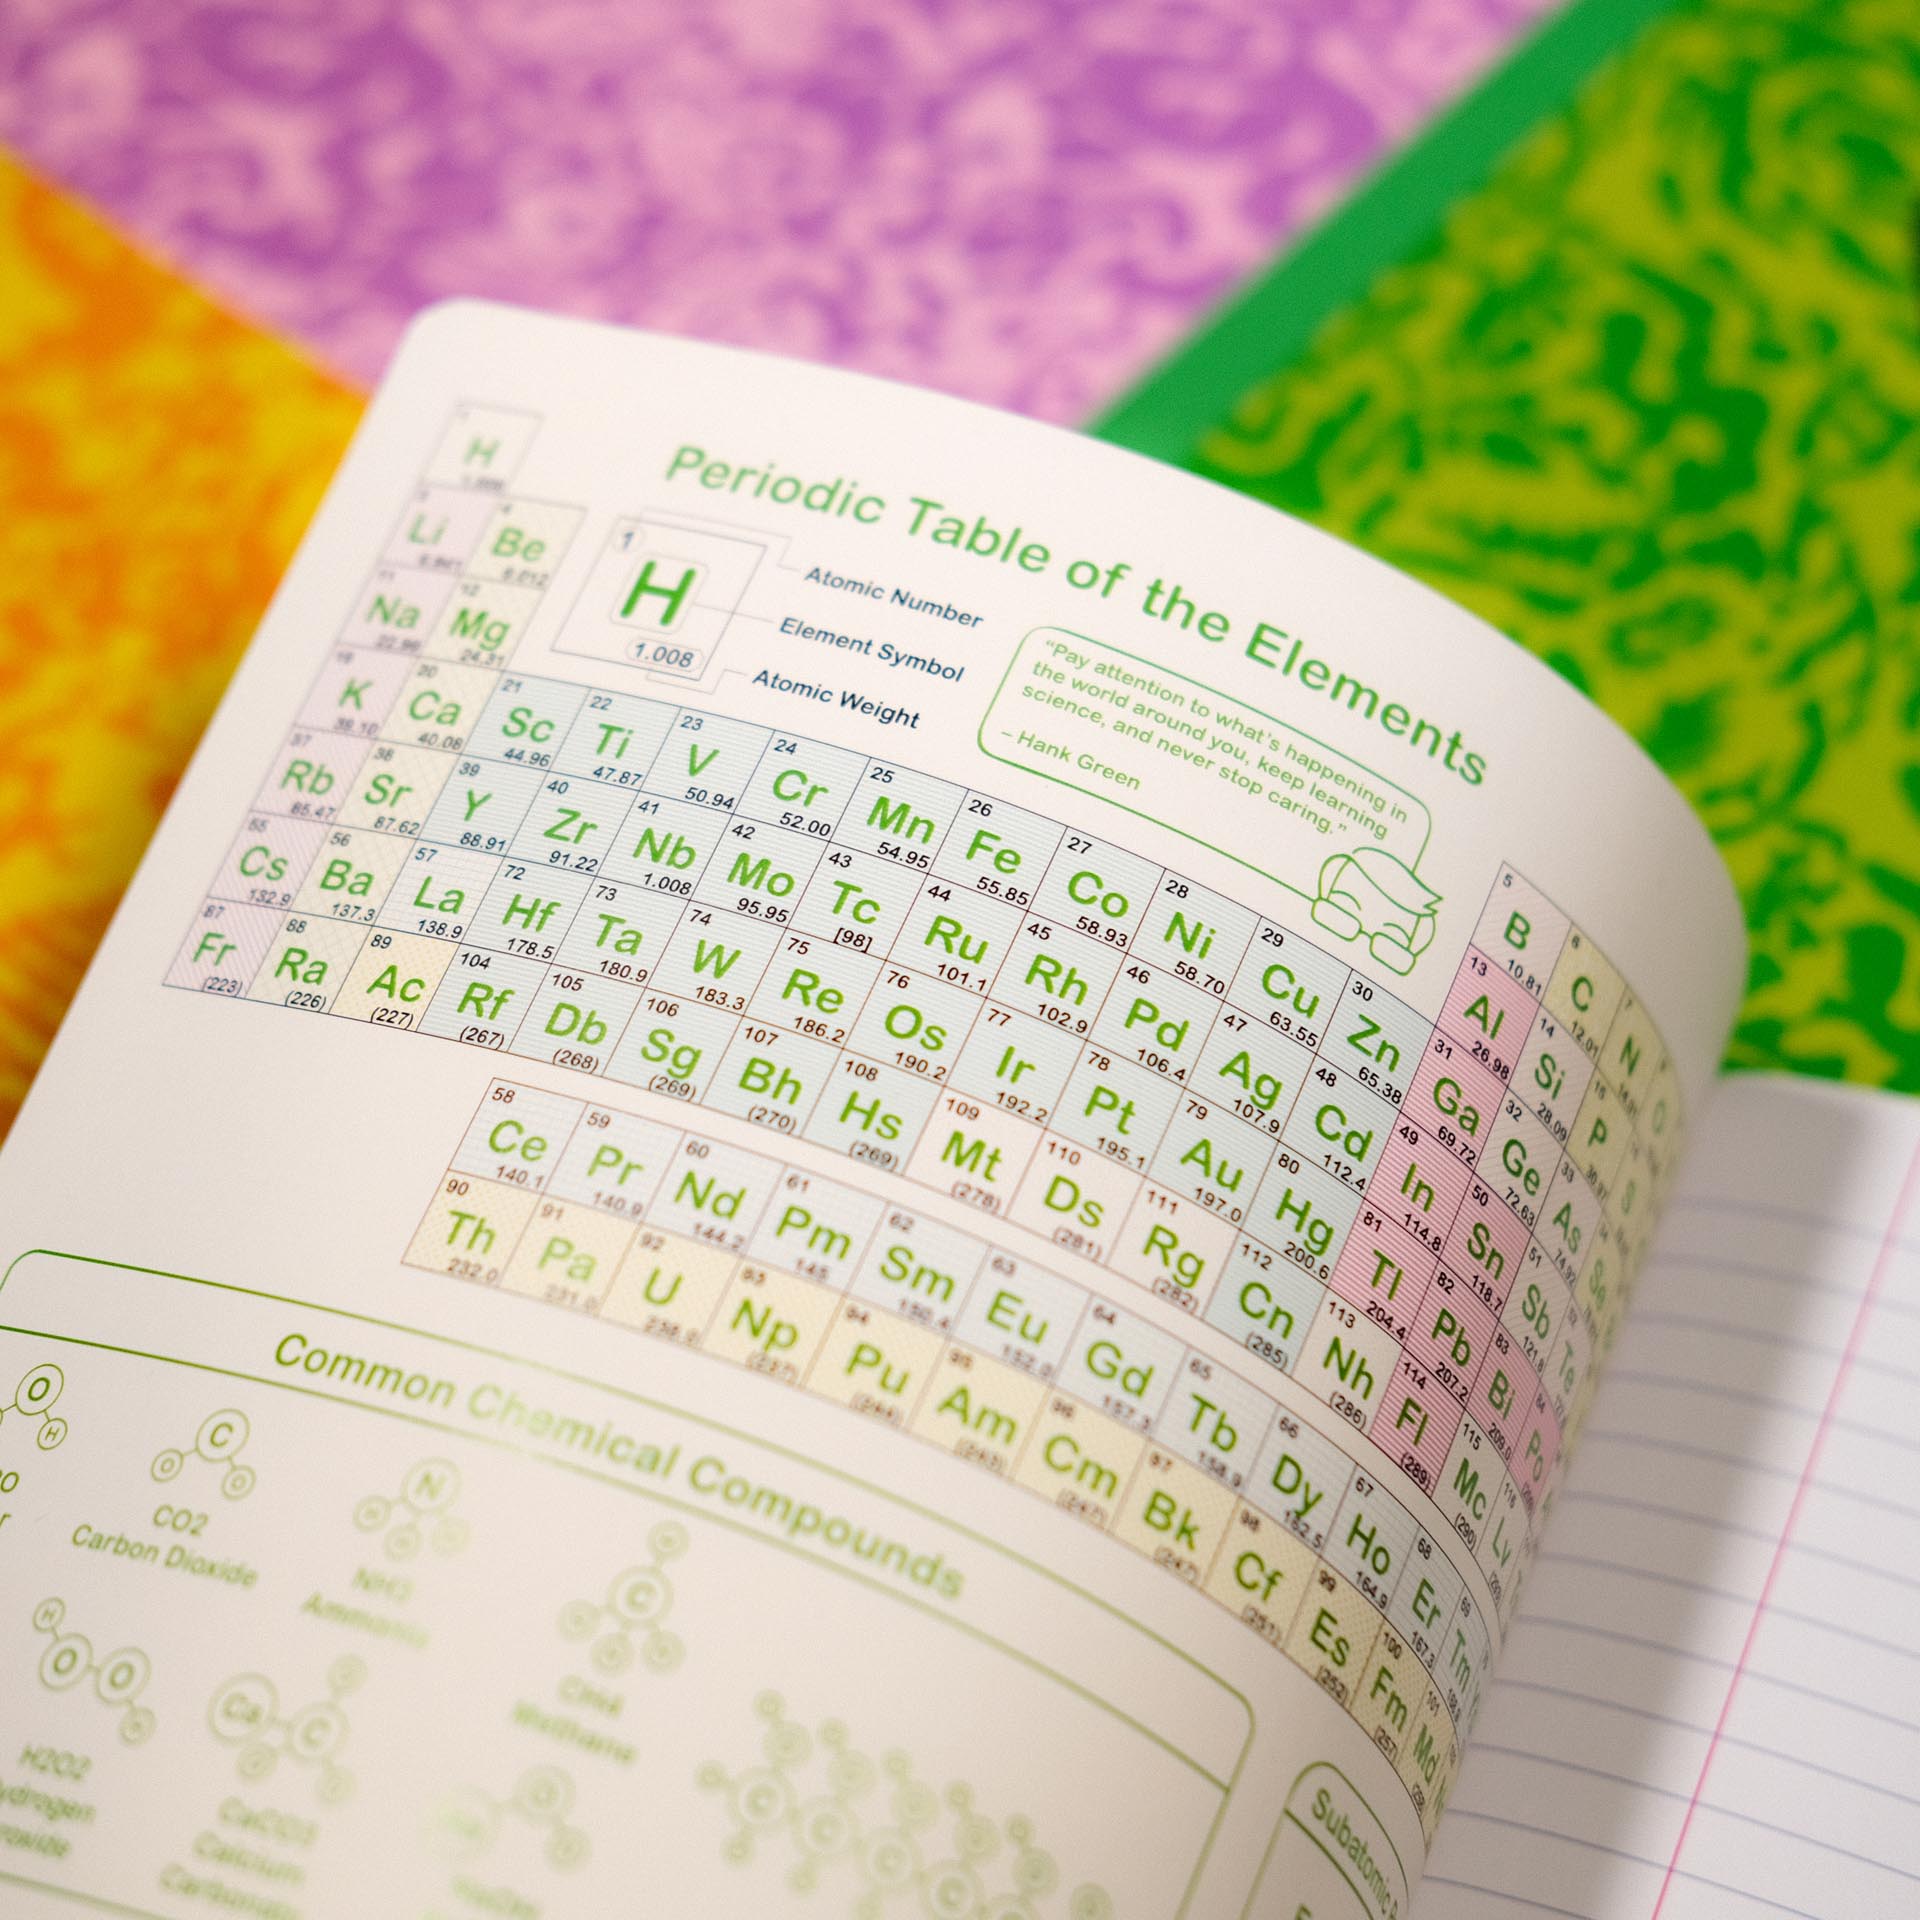 Periodic Table of the Elements
1
H
1.008
Atomic Number
Element Symbol
Atomic Weight
“Pay attention to what’s happening in
the world around you, keep learning
science, and never stop caring.”
– Hank Green
H
Li Be
Na Mg
22.98 24.31
19 20 21 22 23 24 25 26 27 28 29 30
K Ca Sc Ti V Cr Mn Fe Co Ni Cu Zn
39.10 40.08 44.96 47.87 50.94 52.00 54.95 55.85 58.93 58.70 63.55 65.38
5 6 7
B C N
10.81 12.01
13 14 15
Al Si P
26.98 28.09 30.97
31 32 33
Ga Ge As Se
69.72 72.63 74.92
37 38 39 40 41 42 43 44 45 46 47 48 49 50 51
Rb Sr Y Zr Nb Mo Tc Ru Rh Pd Ag Cd In Sn Sb Te
85.47 87.62 88.91 91.22 1.008 95.95 [98] 101.1 102.9 106.4 107.9 112.4 114.8 118.7 121.8
55 56 57 72 73 74 75 76 77 78 79 80 81 82 83 84
Cs Ba La Hf Ta W Re Os Ir Pt Au Hg Tl Pb Bi Po
132.9 137.3 138.9 178.5 180.9 183.3 186.2 190.2 192.2 195.1 197.0 200.6 204.4 207.2 209.0
87 88 89 104 105 106 107 108 109 110 111 112 113 114 115 116
Fr Ra Ac Rf Db Sg Bh Hs Mt Ds Rg Cn Nh Fl Mc Lv
(223) (226) (227) (267) (268) (269) (270) (269) (278) (281) (282) (285) (286) (289) (290)
58 59 60 61 62 63 64 65 66 67 68 69
Ce Pr Nd Pm Sm Eu Gd Tb Dy Ho Er Tm
140.1 140.9 144.2 145 150.4 152.0 157.3 158.9 162.5 164.9 167.3
90 91 92 93 94 95 96 97 98 99 100 101
Th Pa U Np Pu Am Cm Bk Cf Es Fm Md
232.0 231.0 238.0 (237) (244) (243) (247) (247) (251) (252) (257)
Common Chemical Compounds
O
H
C
O O
CO2
Carbon Dioxide
N
NH3
Ammonia
C
CH4
Methane
H
O O
H2O2
Ca C
CaCO3
Calcium
Carbonate
C C C C C
Subatomic